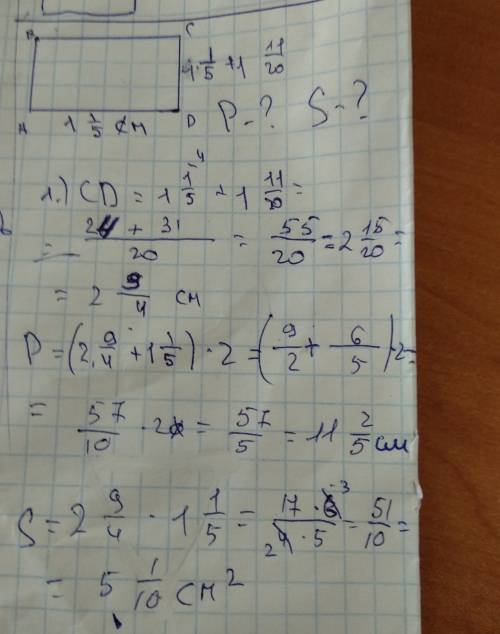 B C
1 1/5 + 1 11/20
A 1 1/5 см D P - ? S - ?
1.) CD = 1 1/5 + 1 11/20 =
= (24 + 31)/20 = 55/20 = 2 15/20 =
= 2 9/4 см
P = (2 9/4 + 1 1/5) · 2 = (9/2 + 6/5) · 2 =
= 57/10 · 2 = 57/5 = 11 2/5 см
S = 2 9/4 · 1 1/5 = (17 · 6)/(4 · 5) = 51/10 =
= 5 1/10 см²